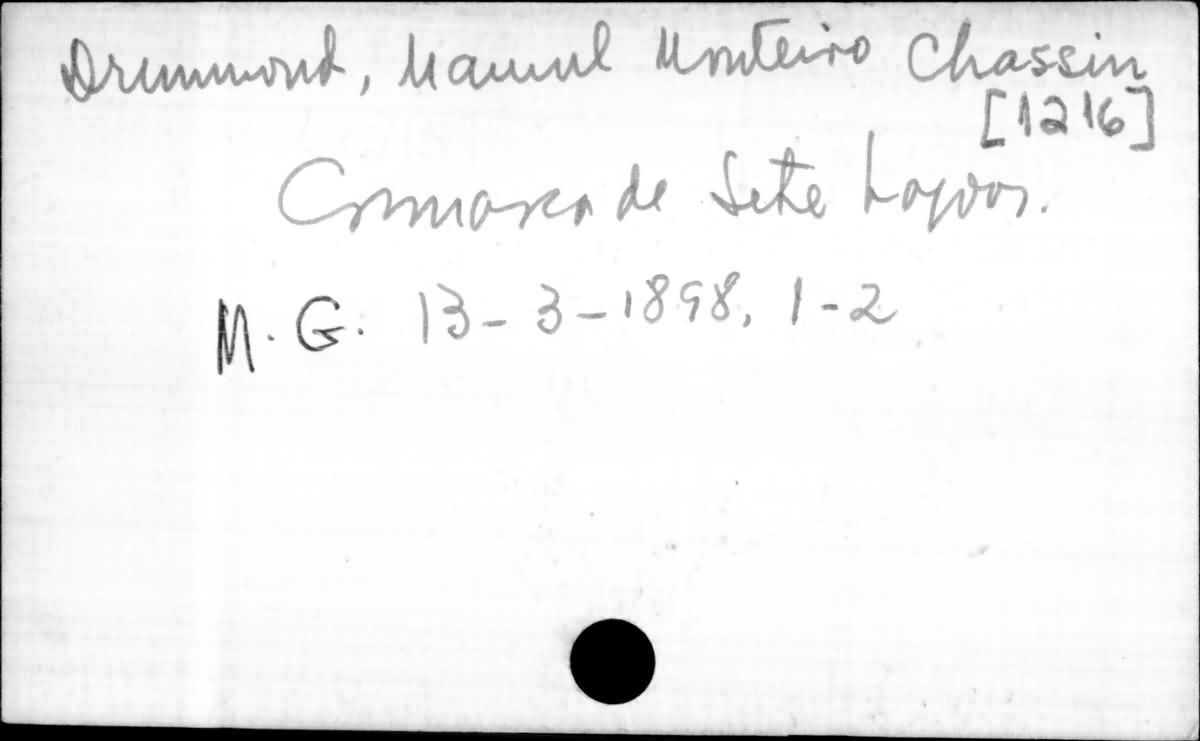 Drummond, Manuel Monteiro Chassin
[1216]
Comarca de Sete Lagoas.
M. G. 13-3-1898, 1-2